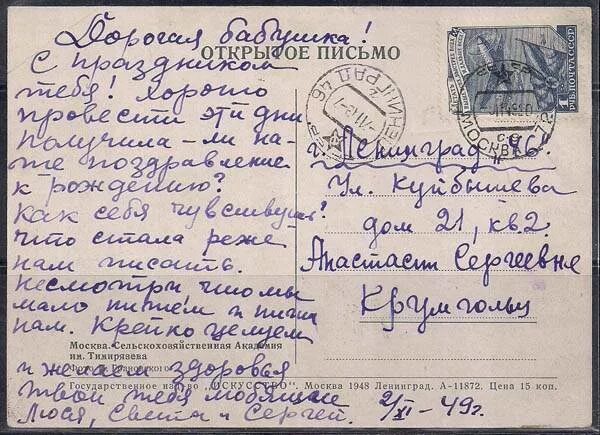 Дорогая бабушка!
ОТКРЫТОЕ ПИСЬМО
С праздником
тебя! Хорошо
провести эти дни
Получила-ли на-
ше поздравление
к рождению?
Как себя чувствуешь?
Что стала реже
нам писать.
Несмотря что мы
мало пишем и пиши
нам. Крепко целуем
Москва. Сельскохозяйственная Академия
им. Тимирязева
и желаем здоровья
Фото
Государственное изд-во „ИСКУССТВО“. Москва 1948 Ленинград. А-11872. Цена 15 коп.
твои тебя любящие
Люся, Света и Сергей.
2/XI-49г.
ЛЕНИНГРАД 46
1 РУБ. ПОЧТА СССР
МОСКВА
Ленинград 46.
Ул. Куйбышева
дом 21, кв2.
Анастасии Сергеевне
Крумгольц